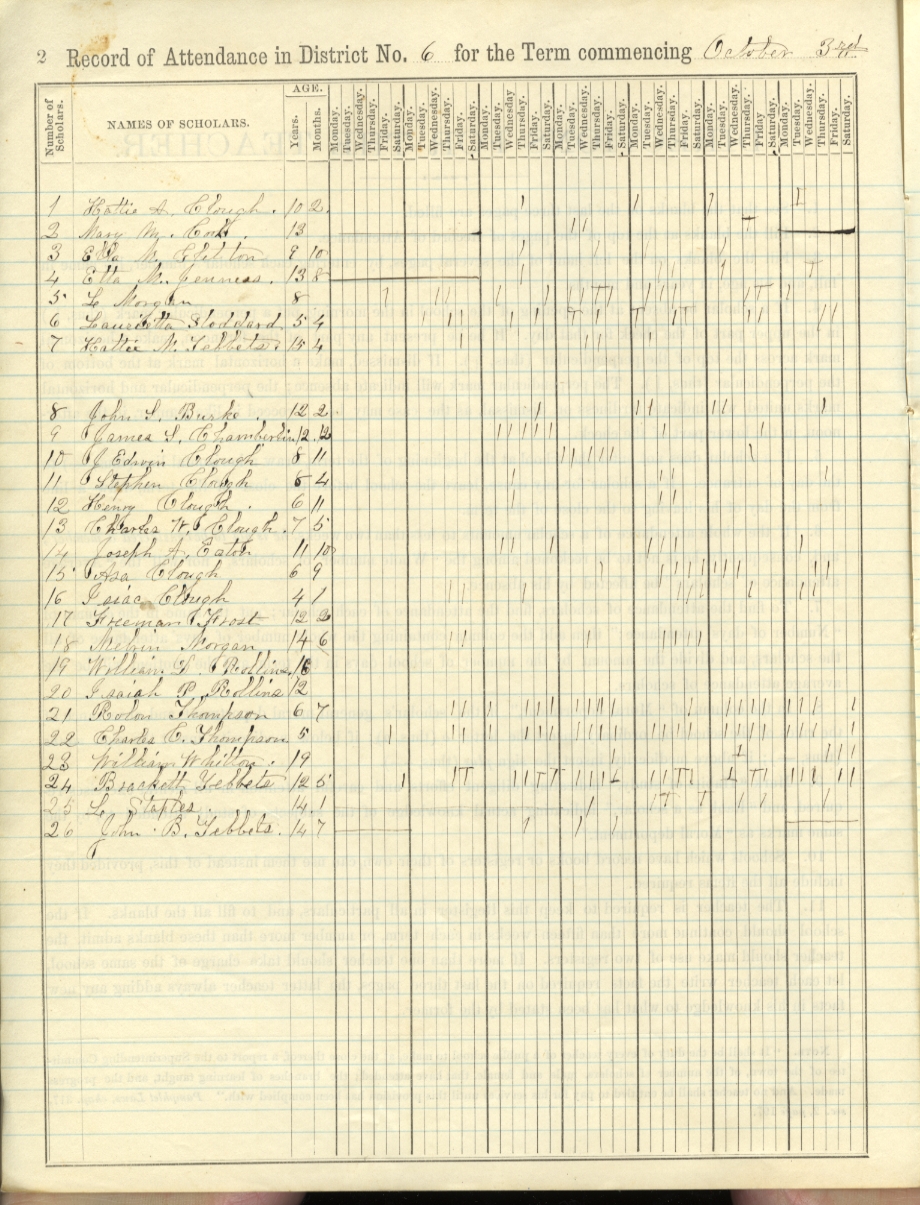 2 Record of Attendance in District No. 6 for the Term commencing October 3rd
Number of Scholars.
NAMES OF SCHOLARS.
AGE.
Years. Months. Monday. Tuesday. Wednesday. Thursday. Friday. Saturday. Monday. Tuesday. Wednesday. Thursday. Friday. Saturday. Monday. Tuesday. Wednesday Thursday. Friday. Saturday. Monday. Tuesday. Wednesday. Thursday. Friday. Saturday. Monday. Tuesday. Wednesday. Thursday. Friday. Saturday. Monday. Tuesday. Wednesday. Thursday. Friday Saturday. Monday. Tuesday. Wednesday. Thursday. Friday. Saturday.
1 Hattie A. Clough. 10 2.
2 Mary M. 13
3 Ella M. 9 10
4 Etta M. Jenness. 13 8
5 L Morgan 8
6 Laurietta Stoddard 5 4
7 Hattie M. Tebbets. 15 4
8 John S. Burke. 12 2
9 James S. Chamberlin 12 12
10 J Edwin Clough 8 11
11 Stephen Clough 8 4
12 Henry Clough. 6 11
13 Charles W. Clough. 7 5
14 Joseph A. Eaton 11 10
15 Asa Clough 6 9
16 Isiac Clough 4 1
17 Freeman Frost 12 2
18 Melvin Morgan 14 6
19 William S. Rollins. 16
20 Isaiah P. Rollins 12
21 Rolon Thompson 6 7
22 Charles E. Thompson 5
23 William Whitton. 19
24 Brackett Tebbets 12 5
25 L. Staples. 14 1
26 John B. Tebbets. 14 7